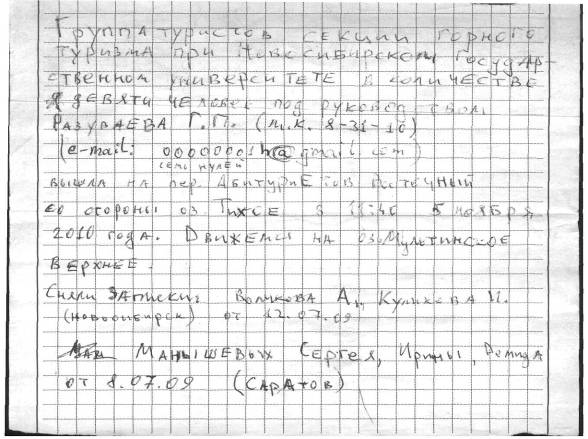 Группа туристов секции горного
туризма при Новосибирском Государ-
ственном университете в количестве
девяти человек под руководством
Разуваева Г.П. (м.к. 8-31-10)
(e-mail: 00000001h@gmail.com)
семь нулей
вышла на пер. Абитуриентов Восточный
со стороны оз. Тихое в 11:40 5 ноября
2010 года. Движемся на оз. Мультинское
Верхнее.
Сняли записки: Волжова А., Куликова И.
(Новосибирск) от 12.07.09
Манышевых Сергея, Ирины,
от 8.07.09 (Саратов)